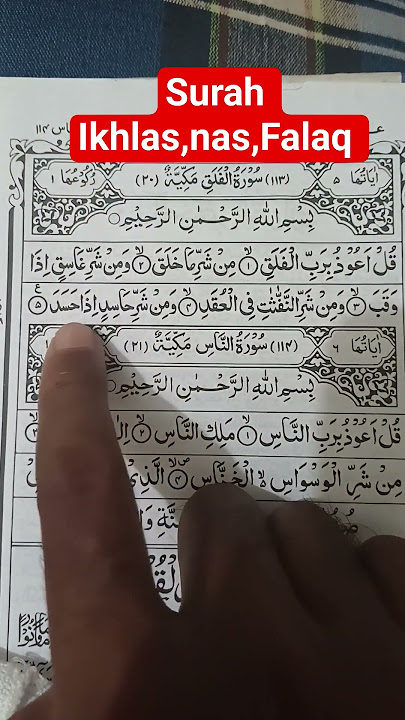 Surah
Ikhlas,nas,Falaq
اٰيَاتُهَا ٥ (١١٣) سُوْرَةُ الْفَلَقِ مَكِّيَّةٌ (٢٠) رُكُوْعُهَا ١
بِسْمِ اللّٰهِ الرَّحْمٰنِ الرَّحِيْمِ
قُلْ اَعُوْذُ بِرَبِّ الْفَلَقِ ١ مِنْ شَرِّ مَا خَلَقَ ٢ وَمِنْ شَرِّ غَاسِقٍ اِذَا
وَقَبَ ٣ وَمِنْ شَرِّ النَّفّٰثٰتِ فِي الْعُقَدِ ٤ وَمِنْ شَرِّ حَاسِدٍ اِذَا حَسَدَ ٥
اٰيَاتُهَا ٦ (١١٤) سُوْرَةُ النَّاسِ مَكِّيَّةٌ (٢١)
بِسْمِ اللّٰهِ الرَّحْمٰنِ الرَّحِيْمِ
قُلْ اَعُوْذُ بِرَبِّ النَّاسِ ١ مَلِكِ النَّاسِ ٢
مِنْ شَرِّ الْوَسْوَاسِ الْخَنَّاسِ ٤